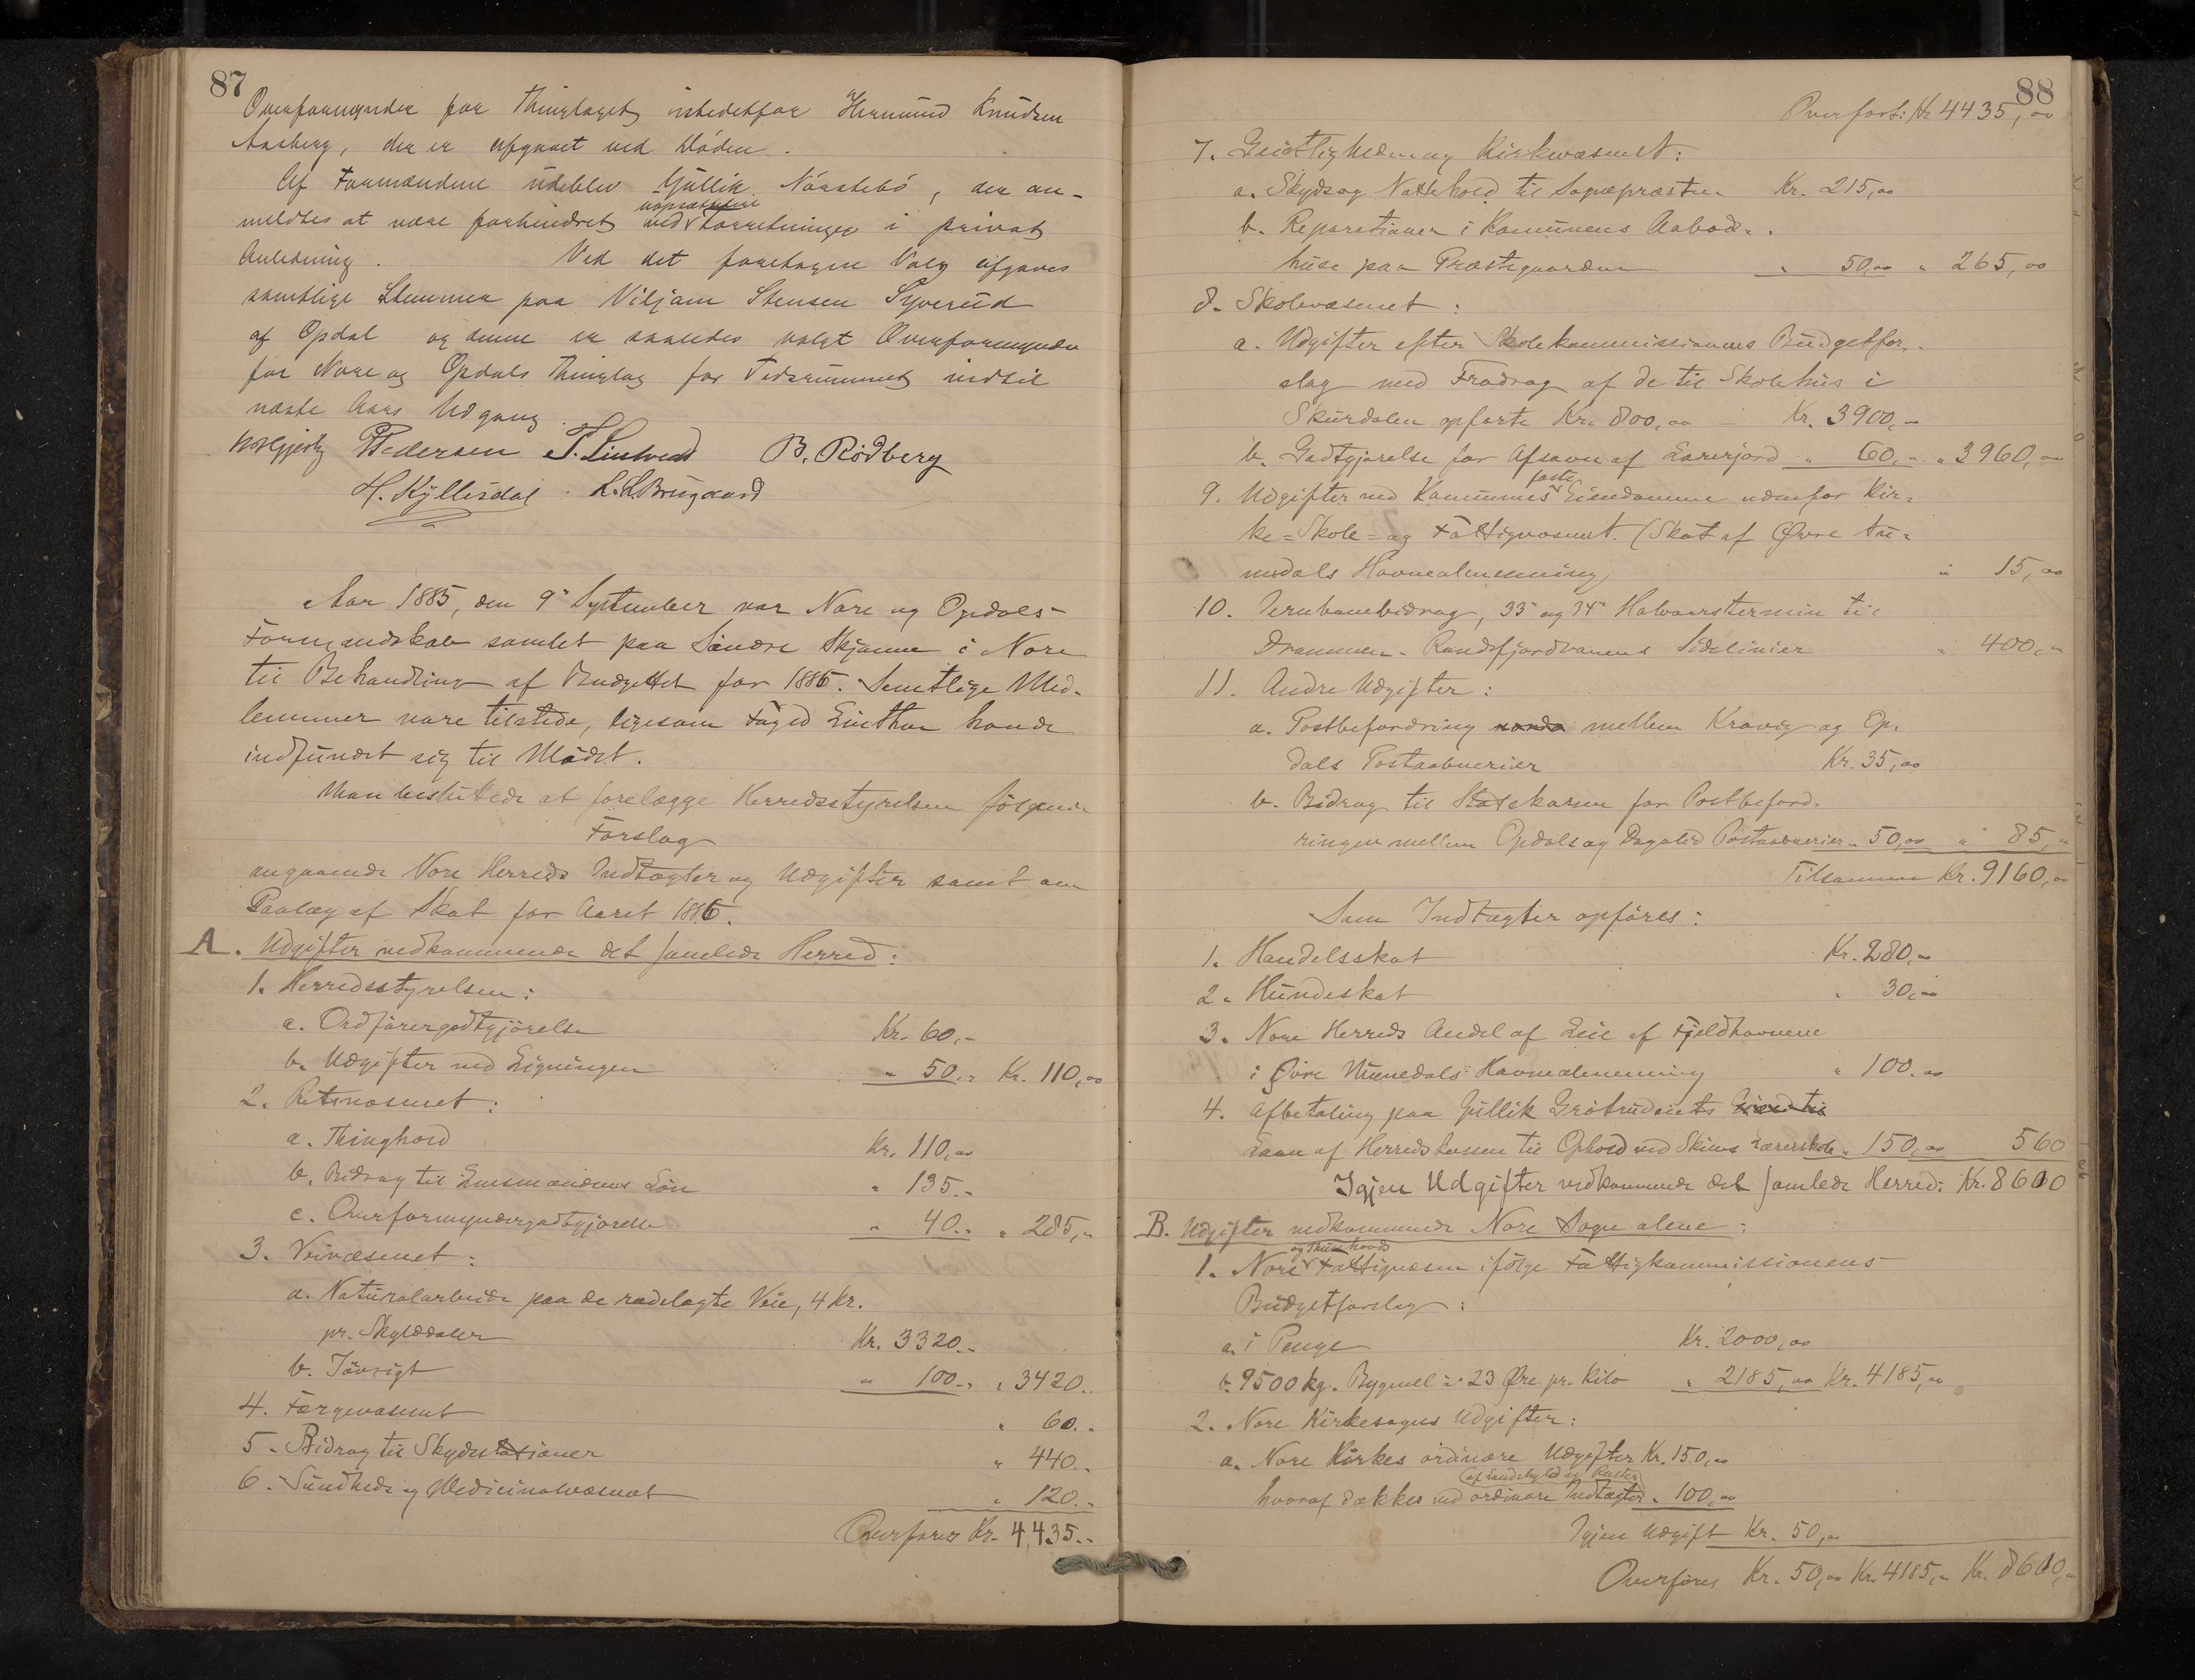 87
Overformynder for Thinglaget istedetfor Hermund Knudsen
Aasberg, der er afgaaet ved Døden.
Af Formændene udeblev Gullik Nørstebø, der an-
meldtes at være forhindret ved Forretninger i privat
Anledning. Ved det foretagne Valg afgaves
samtlige Stemmer paa Viljam Stensen Syverud
af Opdal og denne er saaledes valgt Overformynder
for Nore og Opdals Thinglag for Tidsrummet indtil
næste Aars Udgang.
Pedersen T. Lintvedt B. Rødberg
H. Kyllesdal L. L. Brugaard
Aar 1885, den 9de September var Nore og Opdals
Formandskab samlet paa Søndre Skjønne i Nore
til Behandling af Budgettet for 1886. Samtlige Med-
lemmer vare tilstede, ligesom Foged Einthor havde
indfundet sig til Mødet.
Man besluttede at forelægge Herredsstyrelsen følgende
Forslag
angaaende Nore Herreds Indtægter og Udgifter samt om
Paalæg af Skat for Aaret 1886.
A. Udgifter vedkommende det samlede Herred:
1. Herredsstyrelsen:
a. Ordførergodtgjørelse Kr. 60,-
b. Udgifter ved Ligningen " 50.- Kr. 110,00
2. Retsvæsenet:
a. Thinghold Kr. 110,00
b. Bidrag til Lensmandens Løn " 135.-
c. Overformyndergodtgjørelse " 40.- " 285,-
3. Veivæsenet:
a. Naturalarbeide paa de rodelagte Veie, 4 Kr.
pr. Skylddaler Kr. 3320.-
b. Iøvrigt " 100.- " 3420.-
4. Færgevæsenet " 60.-
5. Bidrag til Skydsstationer " 440.-
6. Sundheds og Medicinalvæsenet " 120.-
Overføres Kr. 4,435.-
88
Overført: Kr 4435,00
7. Geistligheden og Kirkevæsenet:
a. Skyds og Nattehold til Sognepræsten Kr. 215,00
b. Reparationer i Komunens Aabod-
huse paa Præstegaarden " 50,00 " 265,00
8. Skolevæsenet:
a. Udgifter efter Skolekommissionens Budgetfor-
slag med Fradrag af de til Skolehus i
Skurdalen opførte Kr. 800,00 - Kr. 3900,-
b. Godtgjørelse for Afsavn af Lærerjord " 60,- " 3960,00
9. Udgifter ved Komunens faste Eiendomme udenfor Kir-
ke- Skole- og Fattigvæsenet. (Skat af Øvre Nu-
medals Havnealmenning) " 15,00
10. Jernbanebidrag, 33te og 34te Halvaarstermin til
Drammen-Randsfjordbanens Sidelinier " 400,-
11. Andre Udgifter:
a. Postbefordring mellem Kravig og Op-
dals Postaabnerier Kr. 35,00
b. Bidrag til Statskassen for Postbeford-
ringen mellem Opdals og Dagalid Postaabnerier " 50,00 " 85,-
Tilsammen Kr. 9160,00
Som Indtægter opføres:
1. Handelsskat Kr. 280,00
2. Hundeskat " 30,00
3. Nore Herreds Andel af Leie af Fjeldhavnene
i Øvre Numedals Havnealmenning " 100,00
4. Afbetaling paa Gullik Grøtrudeiets
Laan af Herredskassen til Ophold ved Skiens Lærerskole " 150,00 560
Igjen Udgifter vedkommende det samlede Herred: Kr. 8600
B. Udgifter vedkommende Nore Sogn alene:
1. Nore Fattigvæsen ifølge Fattigkommissionens
Budgetforslag:
a. i Penge Kr. 2000,00
b. 9500 kg. Bygmel à 23 Øre pr. Kilo " 2185,00 Kr. 4185,00
2. Nore Kirkesogns Udgifter:
a. Nore Kirkes ordinære Udgifter Kr. 150,00
hvoraf dækkes ved ordinære Indtægter " 100,00
Igjen Udgift Kr. 50,00
Overføres Kr. 50,00 Kr. 4185,- Kr. 8600,-